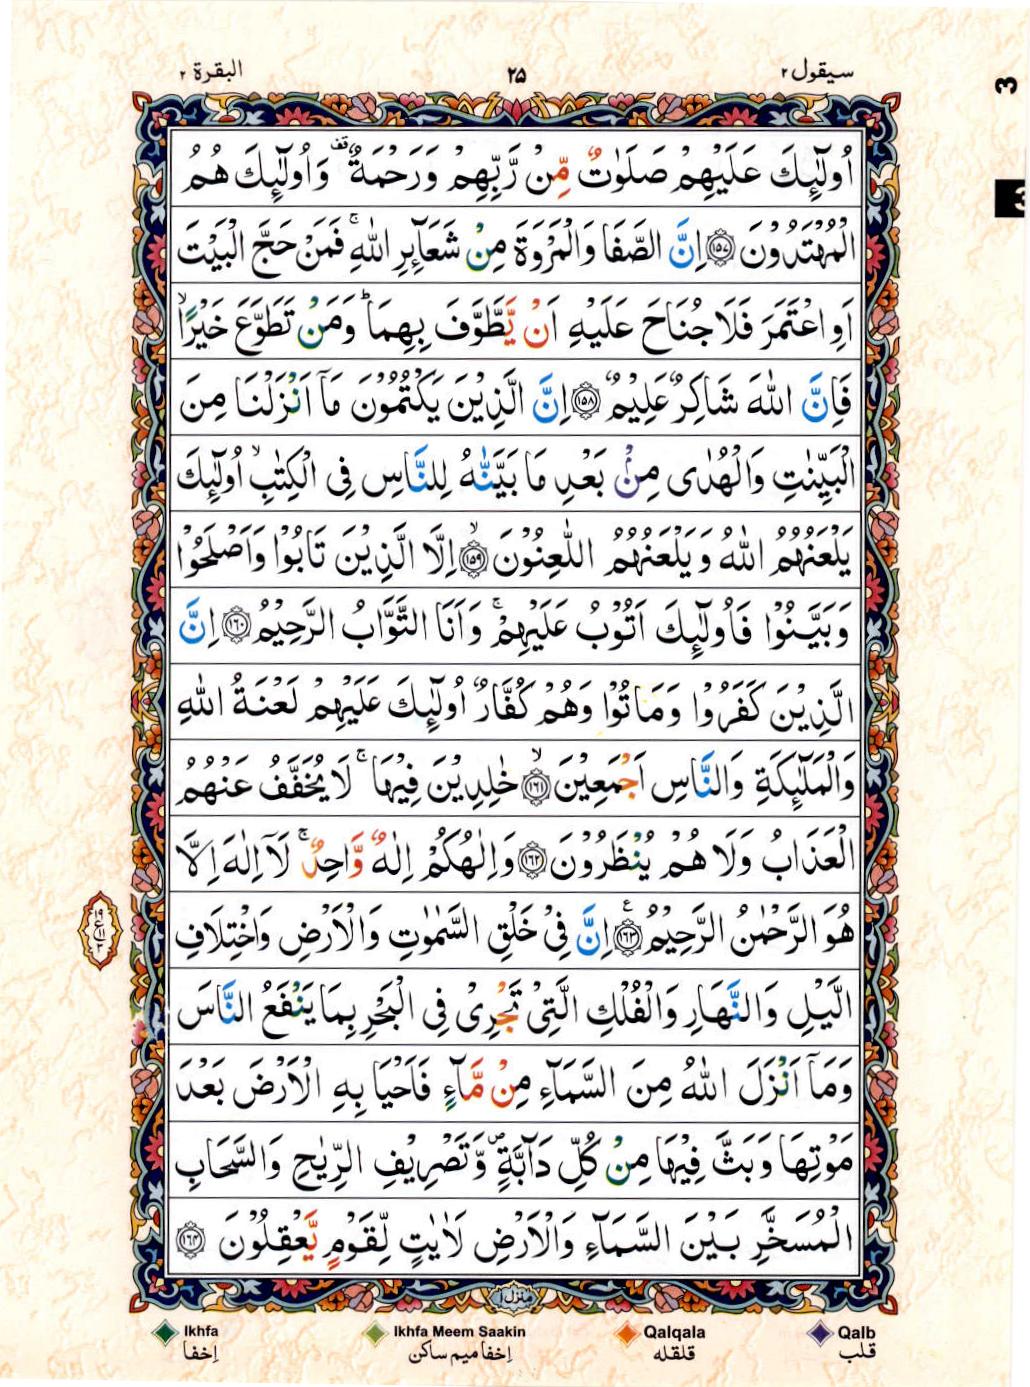 سيقول ٢
٢٥
البقرة ٢
3
3
اُولٰٓئِكَ عَلَيْهِمْ صَلَوٰتٌ مِّنْ رَّبِّهِمْ وَرَحْمَةٌ ۣ وَاُولٰٓئِكَ هُمُ
الْمُهْتَدُوْنَ ﴿١٥٧﴾ اِنَّ الصَّفَا وَالْمَرْوَةَ مِنْ شَعَآئِرِ اللّٰهِ ۚ فَمَنْ حَجَّ الْبَيْتَ
اَوِ اعْتَمَرَ فَلَا جُنَاحَ عَلَيْهِ اَنْ يَّطَّوَّفَ بِهِمَا ؕ وَمَنْ تَطَوَّعَ خَيْرًا ۙ
فَاِنَّ اللّٰهَ شَاكِرٌ عَلِيْمٌ ﴿١٥٨﴾ اِنَّ الَّذِيْنَ يَكْتُمُوْنَ مَآ اَنْزَلْنَا مِنَ
الْبَيِّنٰتِ وَالْهُدٰى مِنْۢ بَعْدِ مَا بَيَّنّٰهُ لِلنَّاسِ فِى الْكِتٰبِ ۙ اُولٰٓئِكَ
يَلْعَنُهُمُ اللّٰهُ وَيَلْعَنُهُمُ اللّٰعِنُوْنَ ۙ﴿١٥٩﴾ اِلَّا الَّذِيْنَ تَابُوْا وَاَصْلَحُوْا
وَبَيَّنُوْا فَاُولٰٓئِكَ اَتُوْبُ عَلَيْهِمْ ۚ وَاَنَا التَّوَّابُ الرَّحِيْمُ ﴿١٦٠﴾ اِنَّ
الَّذِيْنَ كَفَرُوْا وَمَاتُوْا وَهُمْ كُفَّارٌ اُولٰٓئِكَ عَلَيْهِمْ لَعْنَةُ اللّٰهِ
وَالْمَلٰٓئِكَةِ وَالنَّاسِ اَجْمَعِيْنَ ۙ﴿١٦١﴾ خٰلِدِيْنَ فِيْهَا ۚ لَا يُخَفَّفُ عَنْهُمُ
الْعَذَابُ وَلَا هُمْ يُنْظَرُوْنَ ﴿١٦٢﴾ وَاِلٰهُكُمْ اِلٰهٌ وَّاحِدٌ ۚ لَآ اِلٰهَ اِلَّا
هُوَ الرَّحْمٰنُ الرَّحِيْمُ ۧ﴿١٦٣﴾ اِنَّ فِىْ خَلْقِ السَّمٰوٰتِ وَالْاَرْضِ وَاخْتِلَافِ
١٩
ع
١١
٣
الَّيْلِ وَالنَّهَارِ وَالْفُلْكِ الَّتِىْ تَجْرِىْ فِى الْبَحْرِ بِمَا يَنْفَعُ النَّاسَ
وَمَآ اَنْزَلَ اللّٰهُ مِنَ السَّمَآءِ مِنْ مَّآءٍ فَاَحْيَا بِهِ الْاَرْضَ بَعْدَ
مَوْتِهَا وَبَثَّ فِيْهَا مِنْ كُلِّ دَآبَّةٍ ۪ وَّتَصْرِيْفِ الرِّيٰحِ وَالسَّحَابِ
الْمُسَخَّرِ بَيْنَ السَّمَآءِ وَالْاَرْضِ لَاٰيٰتٍ لِّقَوْمٍ يَّعْقِلُوْنَ ﴿١٦٤﴾
منزل ١
Ikhfa
اِخفا
Ikhfa Meem Saakin
اِخفا میم ساکن
Qalqala
قلقله
Qalb
قلب